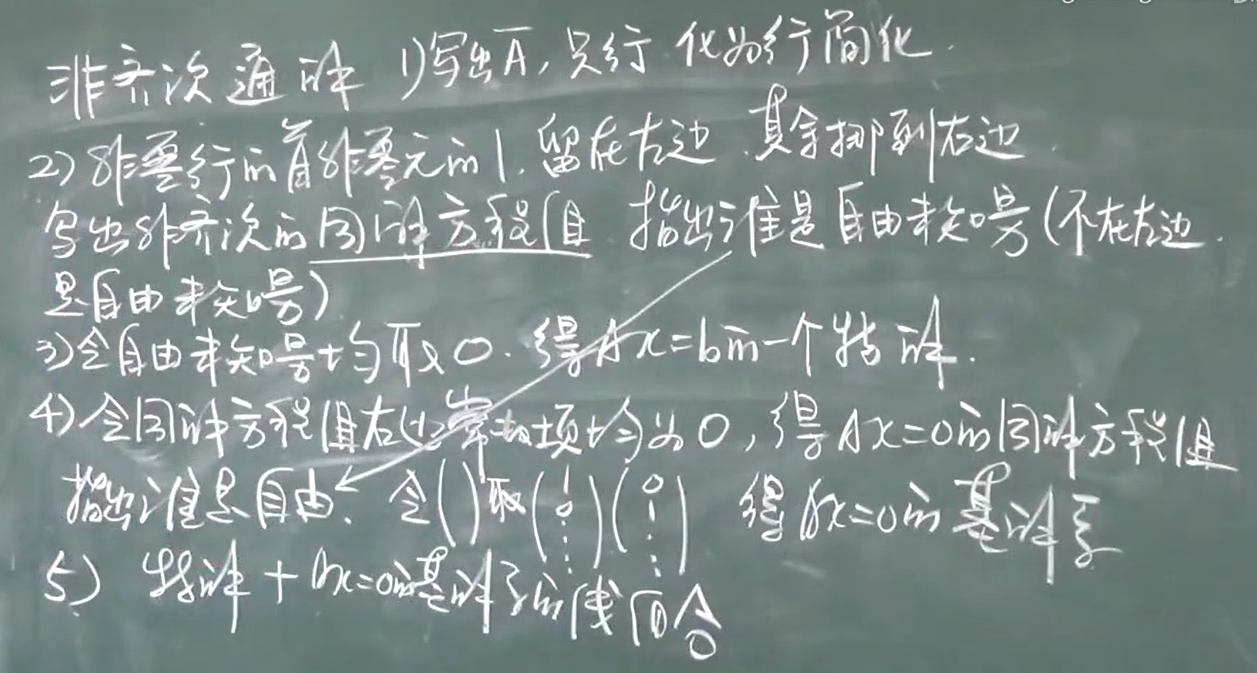 非齐次通解 1)写出Ā,只行 化为行简化.
2)非零行的首非零元的1,留在左边,其余挪到右边.
写出非齐次的同解方程组 指出谁是自由未知号(不在左边.
是自由未知号)
3)令自由未知号均取0.得Ax=b的一个特解.
4)令同解方程组右边常数项均为0,得Ax=0的同解方程组
指出谁是自由.令( )取(1 0 ⋮)(0 1 ⋮) 得Ax=0的基解系
5) 特解+Ax=0的基解系的线组合